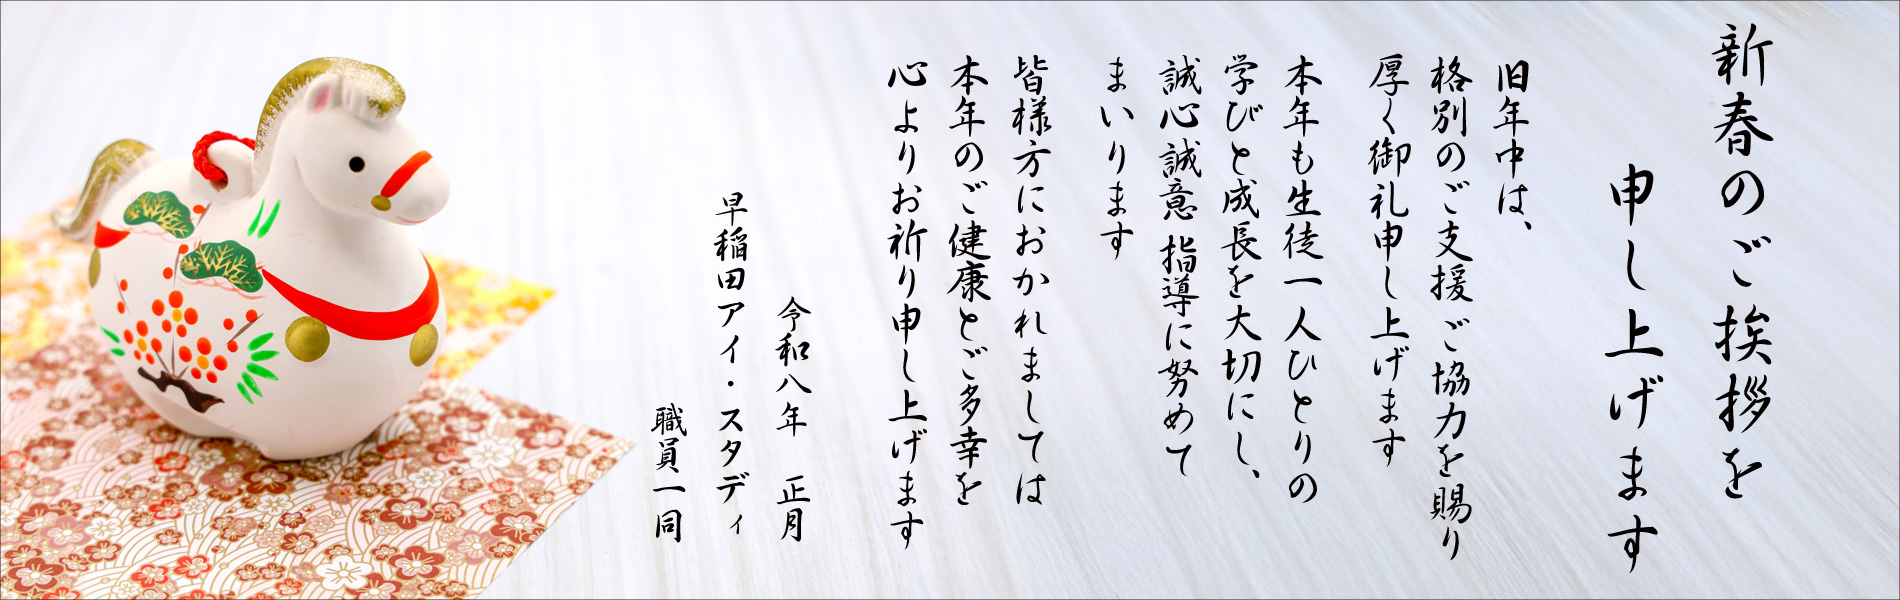 新春のご挨拶を
申し上げます
旧年中は、
格別のご支援ご協力を賜り
厚く御礼申し上げます
本年も生徒一人ひとりの
学びと成長を大切にし、
誠心誠意 指導に努めて
まいります
皆様方におかれましては
本年のご健康とご多幸を
心よりお祈り申し上げます
令和八年　正月
早稲田アイ・スタディ
職員一同